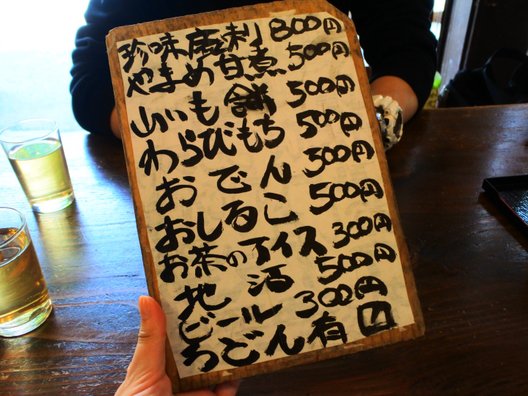 珍味鹿刺 800円
やまめ甘煮 500円
山いも餅 500円
わらびもち 500円
おでん 500円
おしるこ 500円
お茶のアイス 300円
地酒 500円
ビール 300円
うどん有〼